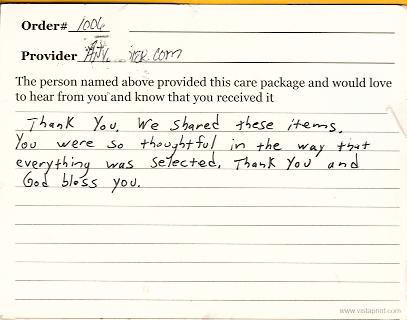 Order# 1006
Provider
The person named above provided this care package and would love
to hear from you and know that you received it
Thank You. We shared these items.
You were so thoughtful in the way that
everything was selected. Thank you and
God bless you.
www.vistaprint.com